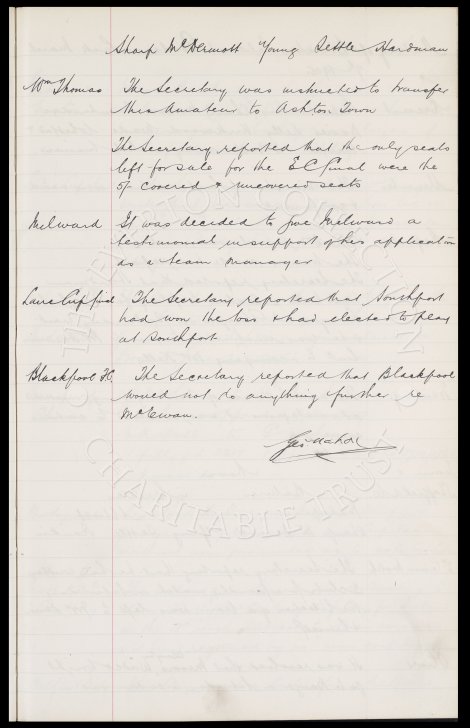 Sharp McDermott Young Settle Hardman
Wm Thomas The Secretary was instructed to transfer
this Amateur to Ashton Town
The Secretary reported that the only seats
left for sale for the E C final were the
5/ covered & uncovered seats
Milward It was decided to give Milward a
testimonial in support of his application
as a team manager
Lancs Cup find The Secretary reported that Southport
had won the toss & had elected to play
at Southport
Blackpool FC The Secretary reported that Blackpool
would not do anything further re
McEwan.
Geo Mahon
THE EVERTON COLLECTION
CHARITABLE TRUST